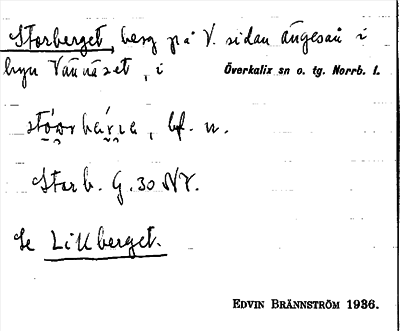 Storberget, berg på V. sidan ängesån i
byn Vännäset, i Överkalix sn o. tg. Norrb. l.
bf. n.
Storb. G. 30 NV.
Se Lillberget.
EDVIN BRÄNNSTRÖM 1936.